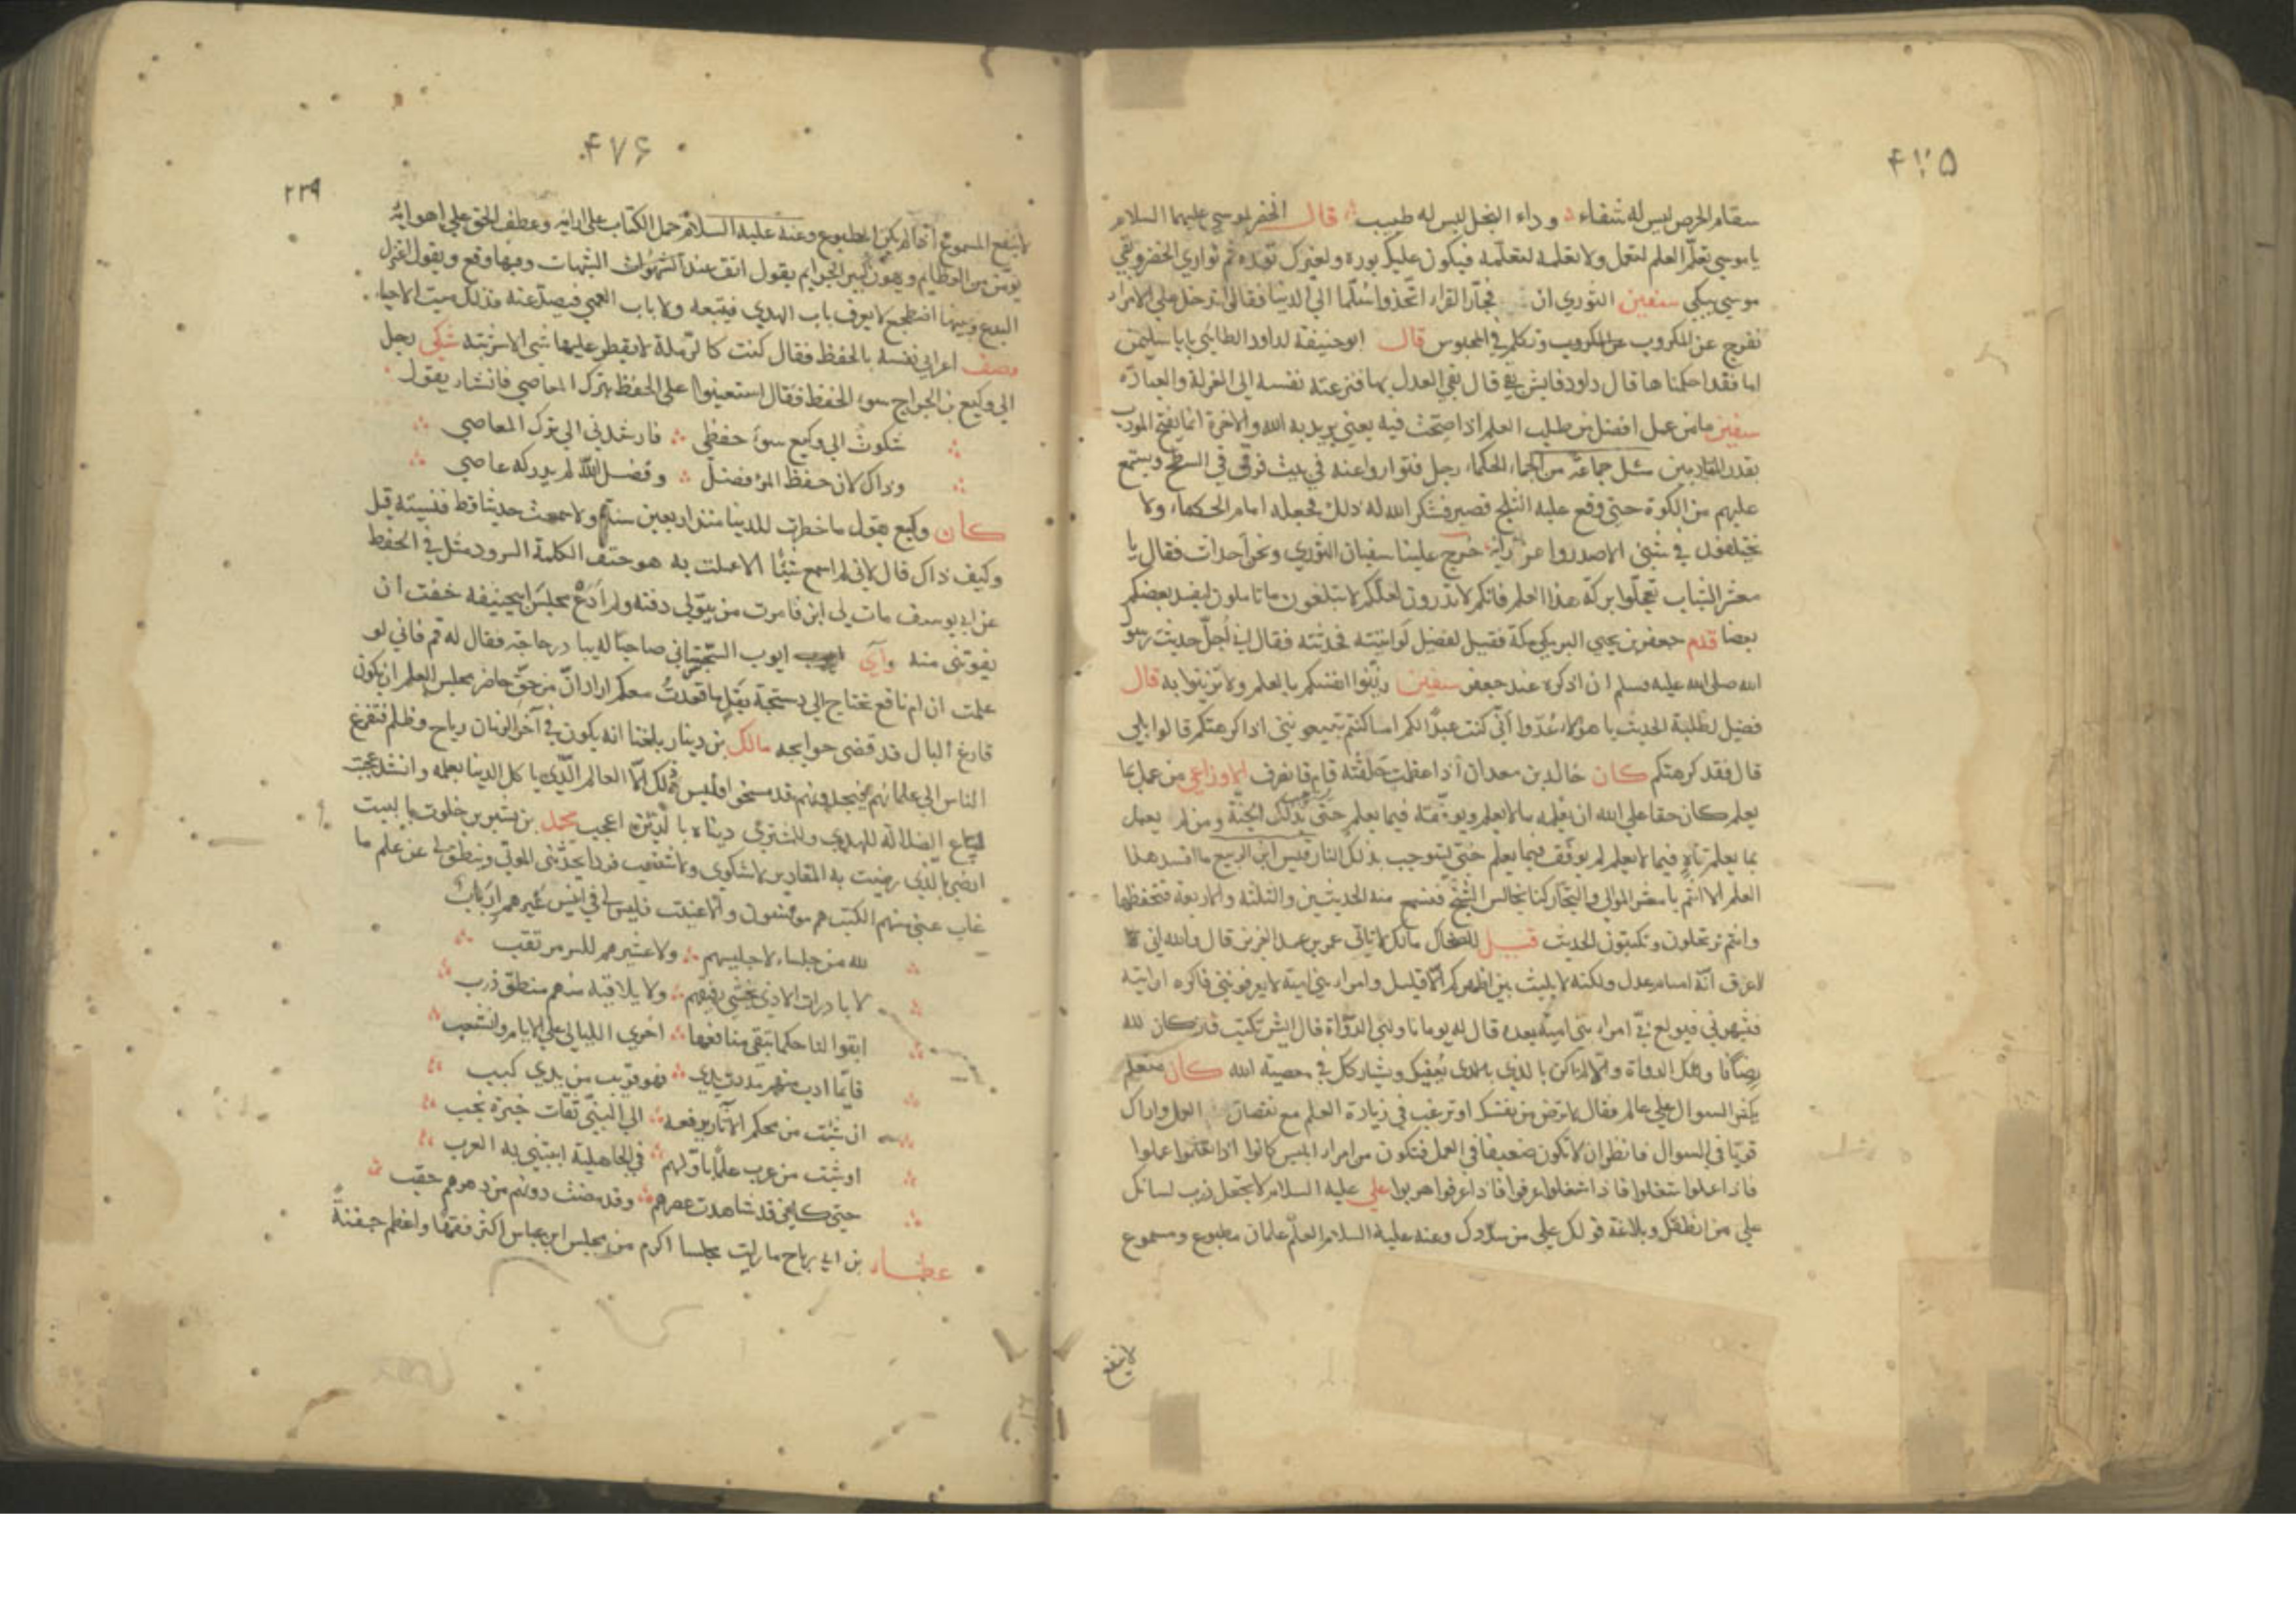 ۴۷۵
سقام الحرص ليس له شفاء وداء البخل ليس له طبيب قال الخضر لموسى عليهما السلام
يا موسى تعلّم العلم لتعمل ولا تعلمه لتعلّمه فيكون عليك بوره ولغيرك نوره ثم توارى الخضر وبقي
موسى يبكي سفين الثوري ان فجار القراء اتخذوا سلّما الى الدنيا فقالوا ندخل على الامراء
نفرج عن المكروب ونكلم في المحبوس قال ابو حنيفة لداود الطائي يا با سليمن
اما فقد احكمناها قال داود فايش بقي قال بقي العمل بها فنزعته نفسه الى العزلة والعبادة
سفين ما من عمل افضل من طلب العلم اذا صحّت فيه يعني يريد به الله والاخرة
سئل جماعة من الحكماء رجل فتواروا عنه في بيت فرقى في السطح ويستمع
عليهم من الكوة حتى وقع عليه الثلج فصبر فشكر الله له ذلك فجعله امام الحكماء ولا
يختلفون في شيئ الا صدروا عن رايه خرج علينا سفيان الثوري ونحن احداث فقال يا
معشر الشباب تعجّلوا بركة هذا العلم فانكم لا تدرون لعلكم لا تبلغون ما تاملون ليفد بعضكم
بعضا قدم جعفر بن يحيى البرمكي مكة فقيل لفضيل لو اتيته فحدثته فقال اني اُجلّ حديث رسول
الله صلى الله عليه وسلم ان اذكره عند جعفر سفين زيّنوا انفسكم بالعلم ولا تزيّنوا به قال
فضيل لطلبة الحديث يا هؤلاء عُدّوا أنّي كنت عبدا لكم اما كنتم تبيعونني اذا كرهتكم قالوا بلى
قال فقد كرهتكم كان خالد بن معدان اذا عظمت حلقته قام فانصرف الاوزاعي من عمل بما
يعلم كان حقا على الله ان يعلمه ما لا يعلم ويوفّقه فيما يعلم حتى بذلك الجنة ومن لم يعمل
بما يعلم تاه فيما لا يعلم ولم يوفّق فيما يعلم حتى يستوجب بذلك النار قيس ابن الربيع ما افسد هذا
العلم الا انتم يا معشر الموالي والتجار كنا نجالس الشيخ فنسمع منه الحديثين والثلثة والاربعة فنحفظها
وانتم ترتحلون وتكتبون الحديث قيل للضحاك مالك لا تاتي عمر بن عبد العزيز قال والله اني
لاعرف انّه امام عدل ولكنه لا يلبث بين اظهركم الّا قليل وامراء بني امية لا يعرفونني فاكره ان اتيه
فشهروني فيولع بي امراء بني اميّة بعده قال له يوما ناولني الدواة قال ايش تكتب فان كان لله
رضًا فاولك الدواة
يكثر السوال على عالم فقال لا ترض من نفسك او ترغب في زيادة العلم مع نقصان العمل واراك
قويّا في السوال فانظر ان لا تكون ضعيفا في العمل فتكون من امراء ابليس كانوا اذا تعلّموا عملوا
فاذا عملوا شغلوا فاذا شغلوا عرفوا فاذا عرفوا هربوا علي عليه السلام لا تجعل ذرب لسانك
على من انطقك وبلاغة قولك على من سدّدك وعنه عليه السلام العلم علمان مطبوع ومسموع
لا ينفع
۴۷۶
۲۳۹
لا ينفع المسموع اذا لم يكن المطبوع وعنه عليه السلام حمل الكتاب على ارائه وعطف الحق على اهوائه
يؤمّن من العظايم ويهون كبير الجرايم يقول اتقف عند الشبهات وفيها وقع ويقول اعتزل
البدع وبينها اضطجع لا يعرف باب الهدى فيتبعه ولا باب العمى فيصدّ عنه فذلك ميت الاحياء
وصف اعرابي نفسه بالحفظ فقال كنت كالرّملة لا يقطر عليها شي الا شربته شكى رجل
الى وكيع بن الجراح سوء الحفظ فقال استعينوا على الحفظ بترك المعاصي فانشار يقول
شكوتُ الى وكيع سوءَ حفظي فارشدني الى ترك المعاصي
وذاك لان حفظ المرء فضلٌ وفضل اللّه لم يدركه عاصي
كان وكيع يقول ما خطرت للدنيا منذ اربعين سنة ولا سمعت حديثا قط فنسيته قيل
وكيف ذاك قال لاني لم اسمع شيئًا الا عملت به هو حتف الكلمة السرود مثل في الحفظ
عن ابي يوسف مات لي ابن فامرت من يتولى دفنه ولم اَدَعْ مجلس ابيحنيفه خفت ان
يفوتني منه رأى ايوب السّختياني صاحبًا له يبادر حاجة فقال له قم فاني لو
علمت ان ام نافع تحتاج الى دستجة بقل ما قعدتُ معكم اراد انّ من حقّ حاضر مجلس العلم ان يكون
فارغ البال قد قضى حوايجه مالك بن دينار بلغنا انه يكون في آخر الزمان رياح وظلم فتفزغ
الناس الى علمائهم فيجدونهم قد مسخوا العالم الّذي ياكل الدنيا بعلمه وانشد عجبت
لمبتاع الضلالة للهدى وللمشترى دنياه بالدّين اعجب محمد بن بشير بن خلوت بالبيت
ارضى بالّذي رضيت به المقادير لا شكوى ولا شغب فردا يحدّثني الموتى وتنطق لي عن علم ما
غاب عني منهم الكتب هم مونسون وآلاف عنيت فليس لي في انيس غيرهم اَرَبُ
لله من جلساء لا جليسهم ولا عشيرهم للسر مرتقب
لا بادرات الاذى يخشى رفيقهم ولا يلاقيه منهم منطق ذرب
ابقوا لنا حكما تبقى منافعها اخرى الليالي على الايام وانشعب
فايّما ادب منهم مددت يدي فهو قريب من يدي كثب
ان شئت من محكم الآثار يرفعه الى النبيّ ثقات خيرة نجب
او شئت من عرب علمًا باوّلهم في الجاهلية انبتني به العرب
حتى كاني قد شاهدت عصرهم وقد مضت دونهم من دهرهم حقب
عطاء بن ابي رباح ما رايت مجلسا اكرم من مجلس ابن عباس اكثر فقهًا واعظم جفنةً